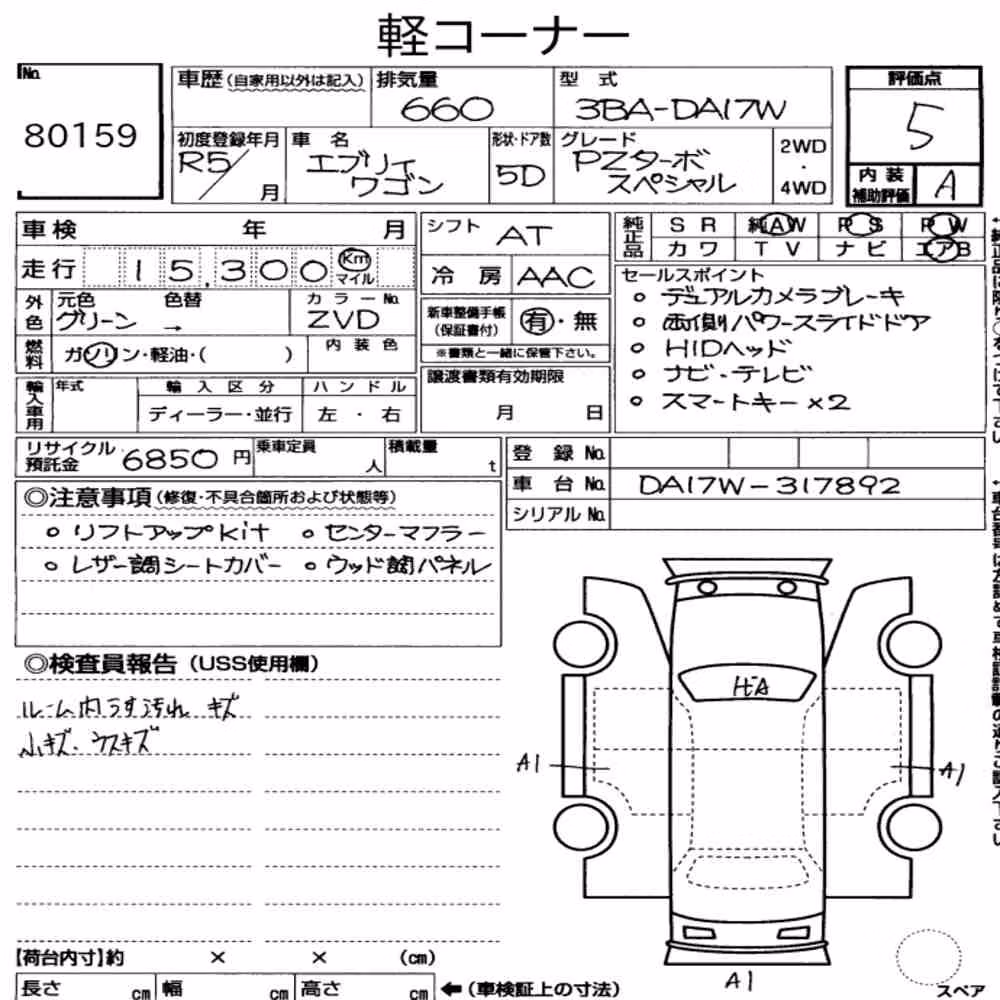 軽コーナー
No. 80159
車歴(自家用以外は記入) 排気量 660 型 式 3BA-DA17W 評価点 5
初度登録年月 R5/ 月 車 名 エブリィ ワゴン 形状・ドア数 5D グレード PZターボ スペシャル 2WD・4WD 内装補助評価 A
車検 年 月 シフト AT 純正品 SR 純AW PS PW
走行 15,300 Km マイル 冷 房 AAC カワ TV ナビ エアB
外色 元色 グリーン → 色替 カラーNo. ZVD 新車整備手帳(保証書付) 有・無
燃料 ガソリン・軽油・( ) 内装色 ※書類と一緒に保管下さい。
セールスポイント
○ デュアルカメラブレーキ
○ 両側パワースライドドア
○ HIDヘッド
○ ナビ・テレビ
○ スマートキー×2
輸入車用 年式 輸入区分 ディーラー・並行 ハンドル 左・右 譲渡書類有効期限 月 日
リサイクル預託金 6850円 乗車定員 人 積載量 t
登 録 No.
車 台 No. DA17W-317892
シリアル No.
◎注意事項(修復・不具合箇所および状態等)
○ リフトアップkit ○ センターマフラー
○ レザー調シートカバー ○ ウッド調パネル
◎検査員報告(USS使用欄)
ルーム内うす汚れ キズ
小キズ・ウスキズ
ヒビA
A1
A1
A1
【荷台内寸】約 × × (cm)
長さ cm 幅 cm 高さ cm ←(車検証上の寸法)
スペア